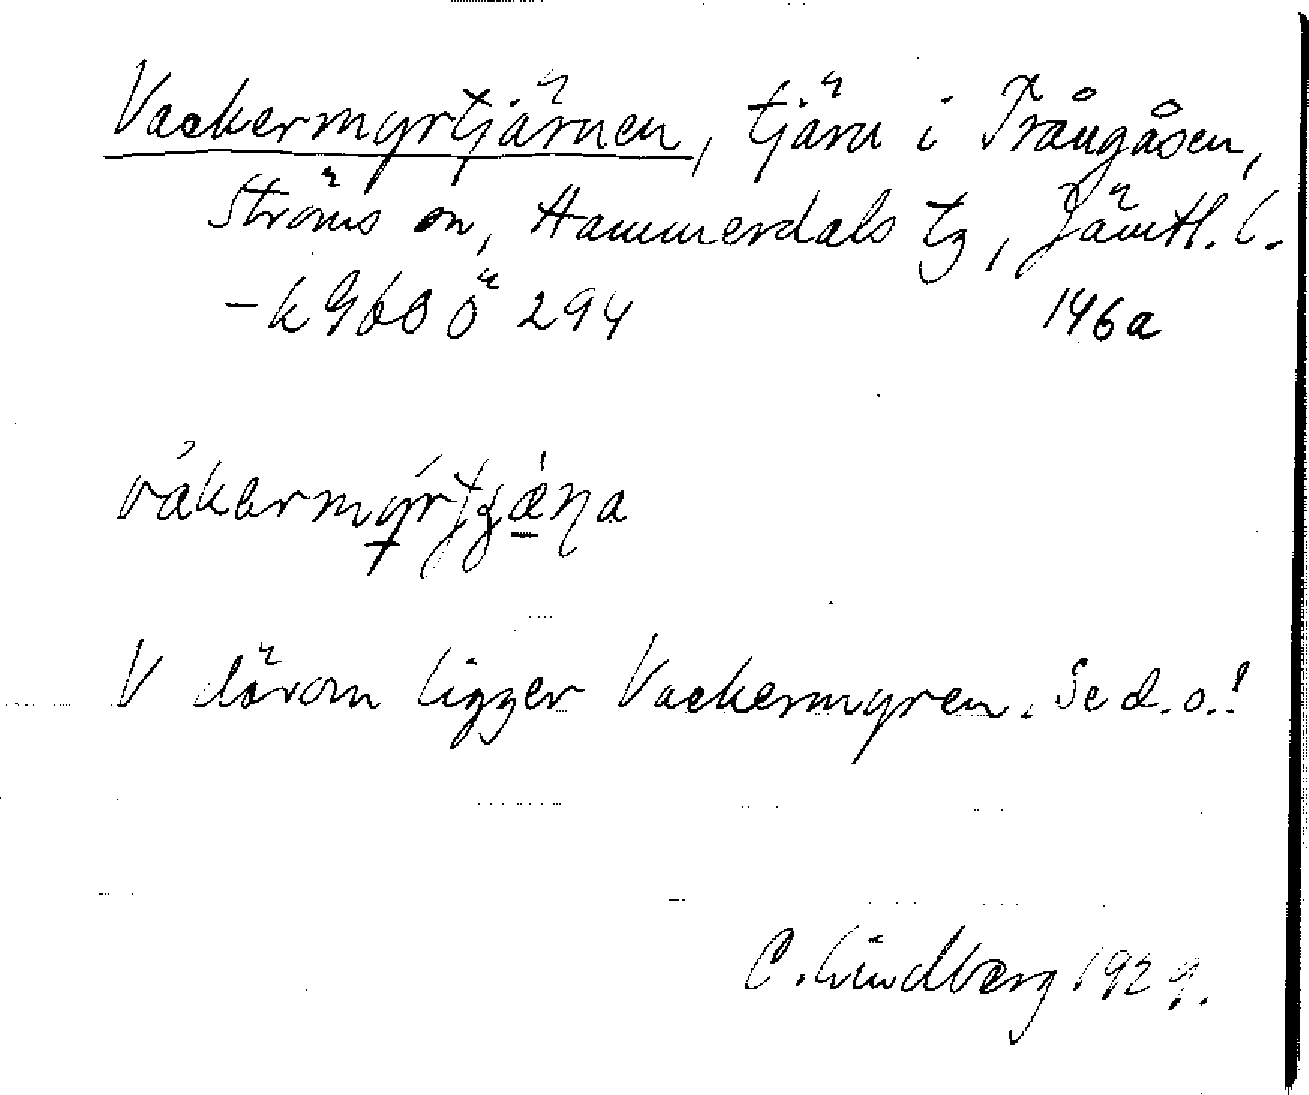 Vackermyrtjärnen, tjärn i Trångåsen,
Ströms sn, Hammerdals tg, Jämtl. l.
- k 960 ö 294 146a
V därom ligger Vackermyren. Se d. o.!
C. Lindberg 1929.